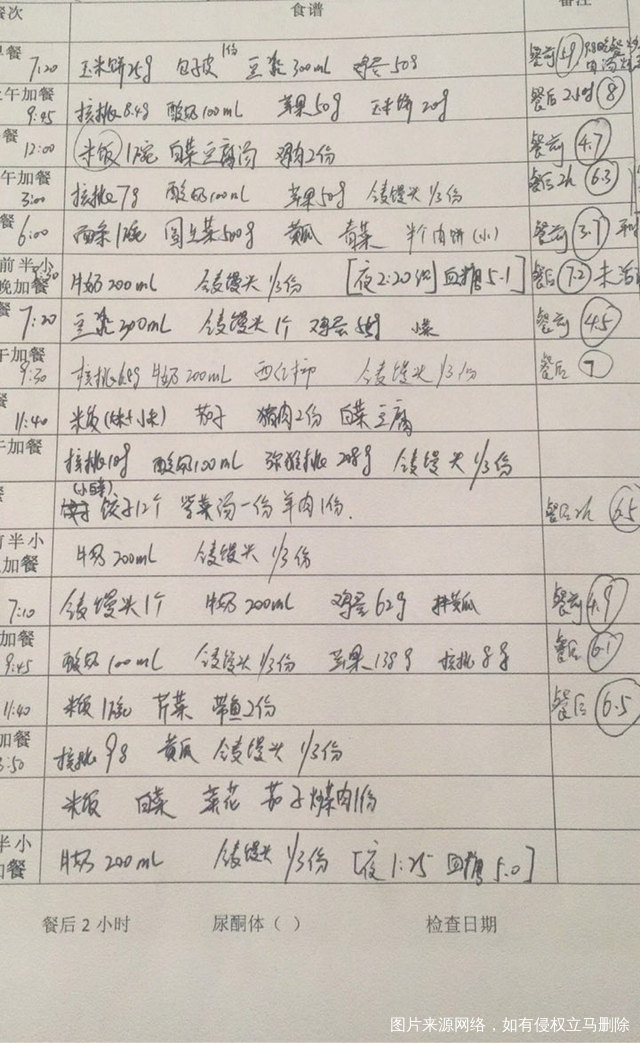 餐次 食谱 备注
早餐 7:20 玉米饼25g 包子皮1份 豆浆300mL 鸡蛋50g 餐前5.9
上午加餐 9:45 核桃8.4g 酸奶100mL 苹果50g 玉米饼20g 餐后2小时8
餐 12:00 米饭1碗 白菜豆腐汤 鸡肉2份 餐前4.7
午加餐 3:00 核桃7g 酸奶100mL 苹果50g 全麦馒头1/3份 餐后2h 6.3
餐 6:00 面条1碗 圆生菜500g 黄瓜 青菜 半个肉饼(小) 餐前3.7
前半小 晚加餐 牛奶200mL 全麦馒头1/3份 [夜2:20 血糖5.1] 餐后7.2
餐 7:20 豆浆300mL 全麦馒头1个 鸡蛋 餐前4.5
午加餐 9:30 核桃 牛奶200mL 西红柿 全麦馒头1/3份 餐后7
餐 11:40 米饭 茄子 猪肉2份 白菜豆腐
午加餐 核桃10g 酸奶100mL 猕猴桃 全麦馒头1/3份
餐 饺子12个 紫菜汤一份 羊肉1份. 餐后2h 6.5
前半小 加餐 牛奶200mL 全麦馒头1/3份
7:10 全麦馒头1个 牛奶200mL 鸡蛋62g 拌黄瓜 餐前4.9
加餐 9:45 酸奶100mL 全麦馒头1/3份 苹果138g 核桃8g 餐后6.1
11:40 米饭1碗 芹菜 带鱼2份 餐后6.5
加餐 3:50 核桃9g 黄瓜 全麦馒头1/3份
米饭 白菜 菜花 茄子 肉1份
半小 加餐 牛奶200mL 全麦馒头1/3份 [夜1:25 血糖5.0]
餐后2小时 尿酮体( ) 检查日期
图片来源网络，如有侵权立马删除